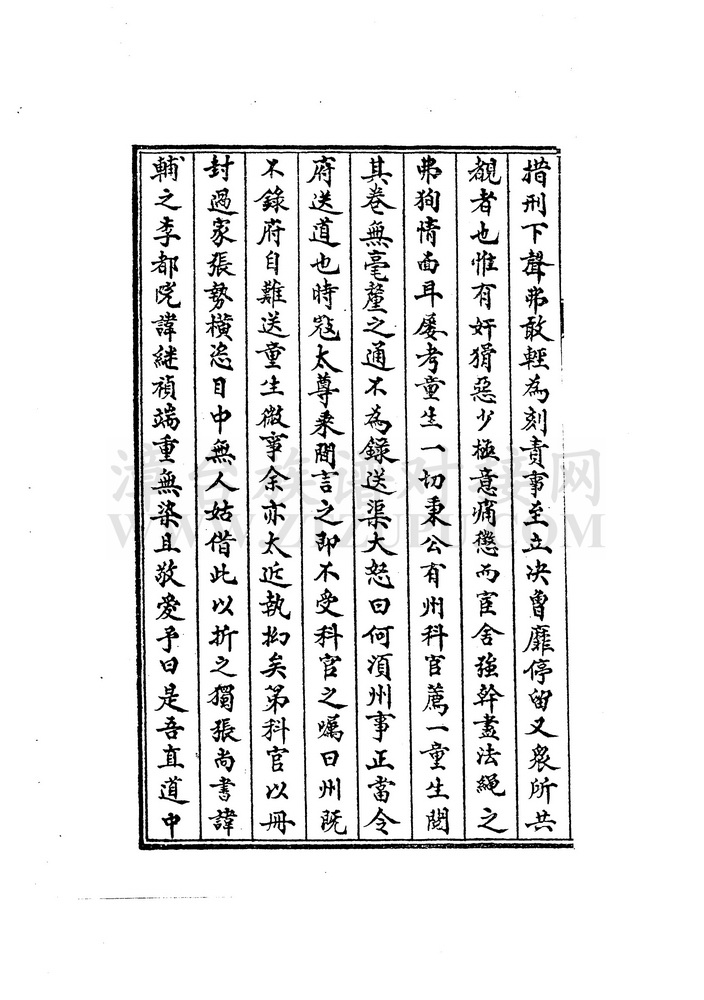 措刑下聲弗敢輕為刻責事至立決曾靡停留又衆所共
覩者也惟有奸猾惡少極意痛懲而宦舍強幹盡法繩之
弗狥情面耳屡考童生一切秉公有州科官薦一童生閱
其卷無毫釐之通不為錄送渠大怒曰何湏州事正當令
府送道也時寇太尊乘間言之即不受科官之囑曰州既
不錄府自難送童生微事余亦太近執拗矣第科官以冊
封過家張勢橫恣目中無人姑借此以折之獨張尚書諱
輔之李都院諱継禎端重無染且敬愛予曰是吾直道中
WWW.ZIZUPU.COM